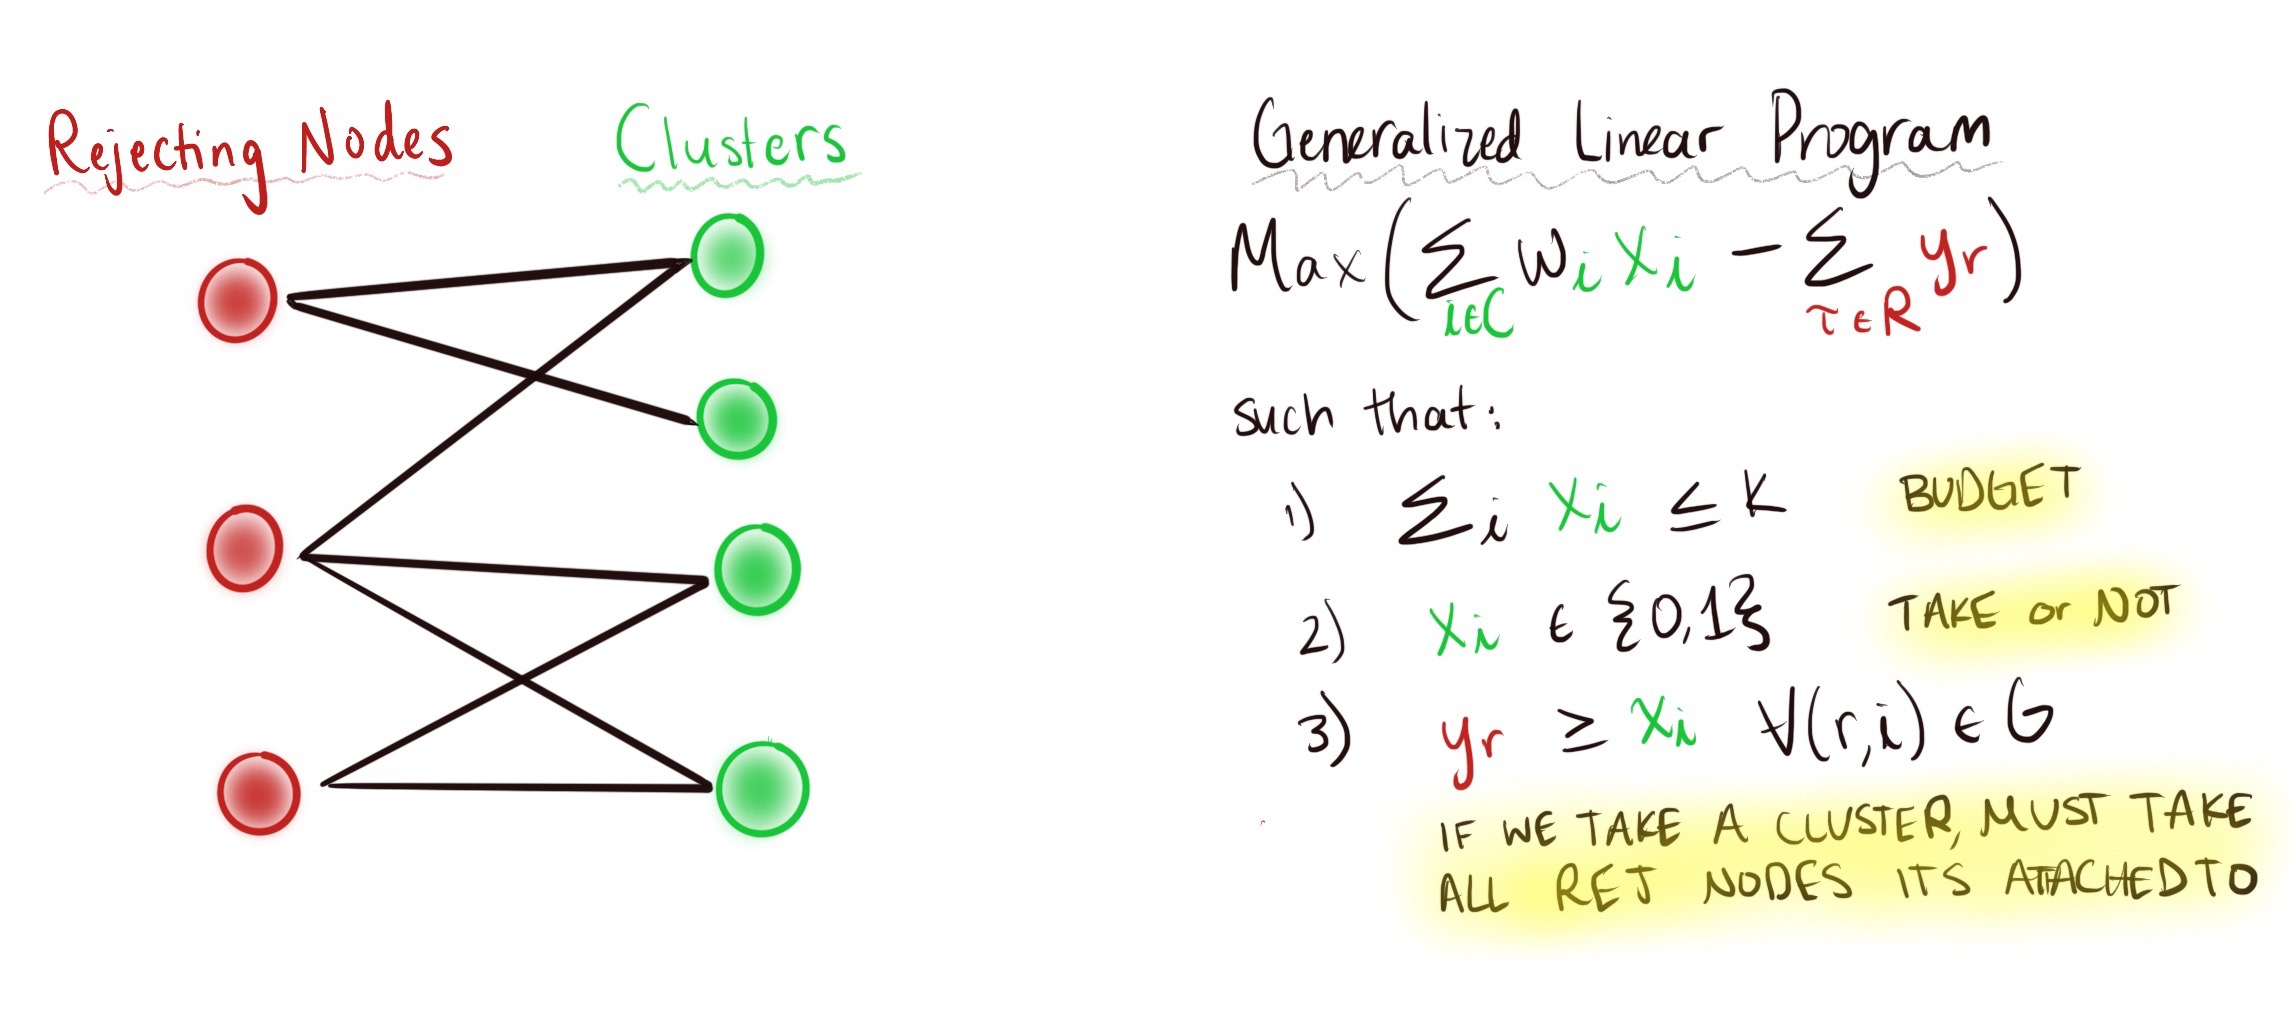 Rejecting Nodes
Clusters
Generalized Linear Program
Max(∑ i∈C wi xi − ∑ r∈R yr)
such that:
1) ∑i xi ≤ K BUDGET
2) xi ∈ {0,1} TAKE or NOT
3) yr ≥ xi ∀(r,i) ∈ G
IF WE TAKE A CLUSTER, MUST TAKE
ALL REJ NODES ITS ATACHED TO